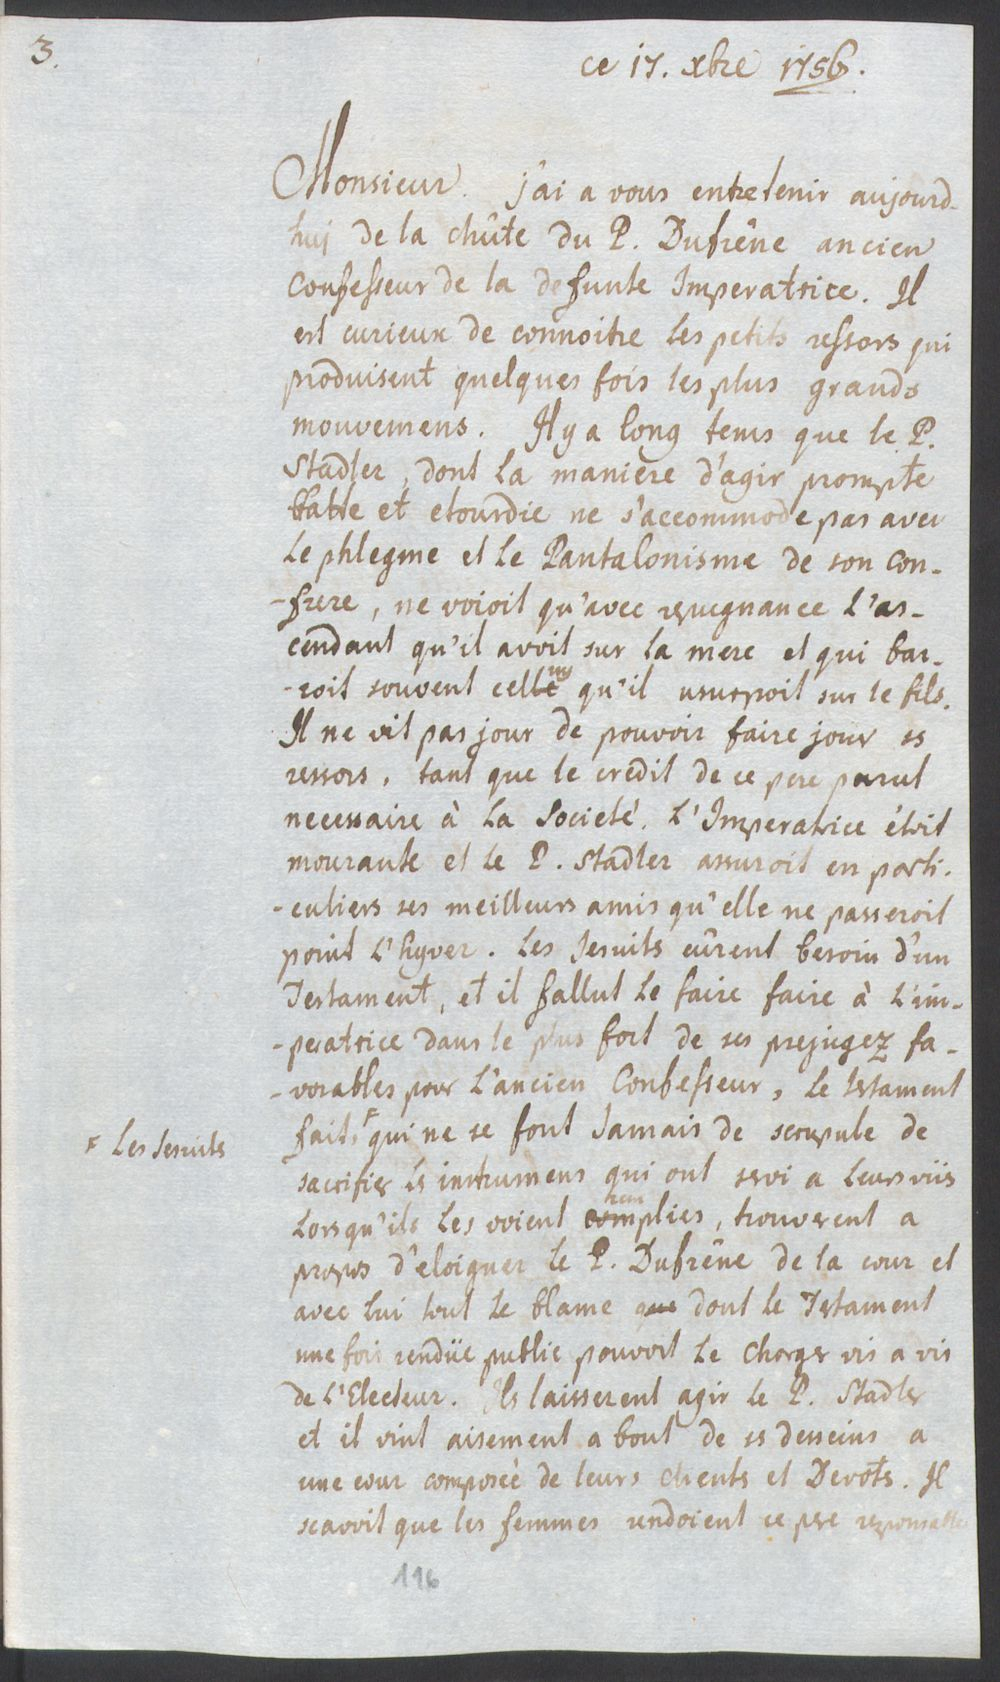 3.
ce 17. xbre 1756.
Monsieur. j'ai a vous entretenir aujourd-
huj de la chûte du P. Dufrêne ancien
Confesseur de la defunte Imperatrice. Il
est curieux de connoitre les petits ressors qui
produisent quelques fois les plus grands
mouvemens. Il y a long tems que le P.
Stadler, dont la maniere d'agir prompte
et etourdie ne s'accommode pas avec
le phlegme et le Pantalonisme de son Con-
-frere, ne voioit qu'avec repugnance l'as-
cendant qu'il avoit sur la mere et qui bar-
-roit souvent celluy qu'il usurpoit sur le fils.
Il ne vit pas jour de pouvoir faire jouer ses
ressors, tant que le credit de ce pere parut
necessaire à la Societé. L'Imperatrice étoit
mourante et le P. Stadler assuroit en parti-
-culiers ses meilleurs amis qu'elle ne passeroit
point l'hyver. Les Jesuits eûrent besoin d'un
Testament, et il fallut le faire faire à l'im-
-peratrice dans le plus fort de ses prejugez fa-
-vorables pour l'ancien Confesseur, le testament
fait, F qui ne se font Jamais de scrupule de
F Les Jesuits
sacrifier les instrumens qui ont servi a leurs viies
lorsqu'ils les voient remplies, trouverent a
propos d'eloigner le P. Dufrêne de la cour et
avec lui tout le blame que dont le Testament
une fois rendüe public pouvoit le charger vis a vis
de l'Electeur. Ils laisserent agir le P. Stadler
et il vint aisement a bout de ses desseins a
une cour composée de leurs clients et Devots. Il
scavoit que les femmes rendoient ce pere responsable
116